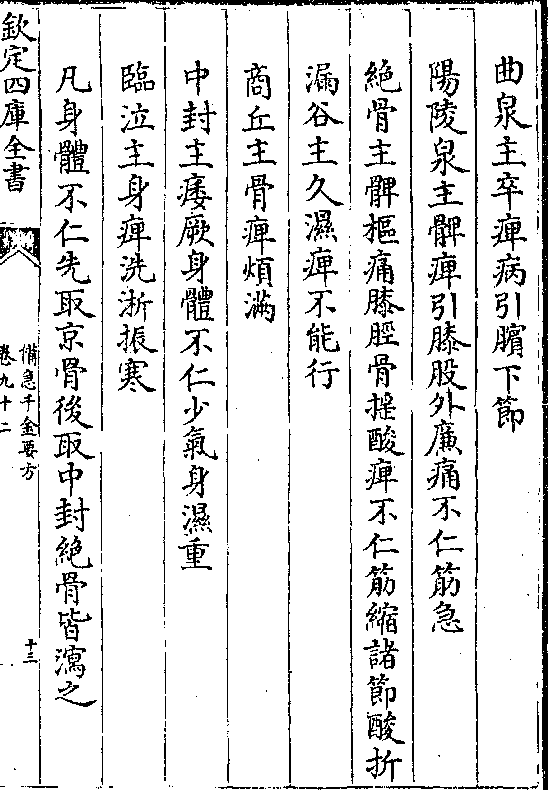 曲泉主卒痺病引髕下節
陽陵泉主髀痺引膝股外廉痛不仁筋急
絶骨主髀樞痛膝脛骨揺酸痺不仁筋縮諸節酸折
漏谷主久濕痺不能行
商丘主骨痺煩滿
中封主痿厥身體不仁少氣身濕重
臨泣主身痺洗淅振寒
凡身體不仁先取京骨後取中封絶骨皆瀉之
欽定四庫全書
備急千金要方
卷九十二
十三